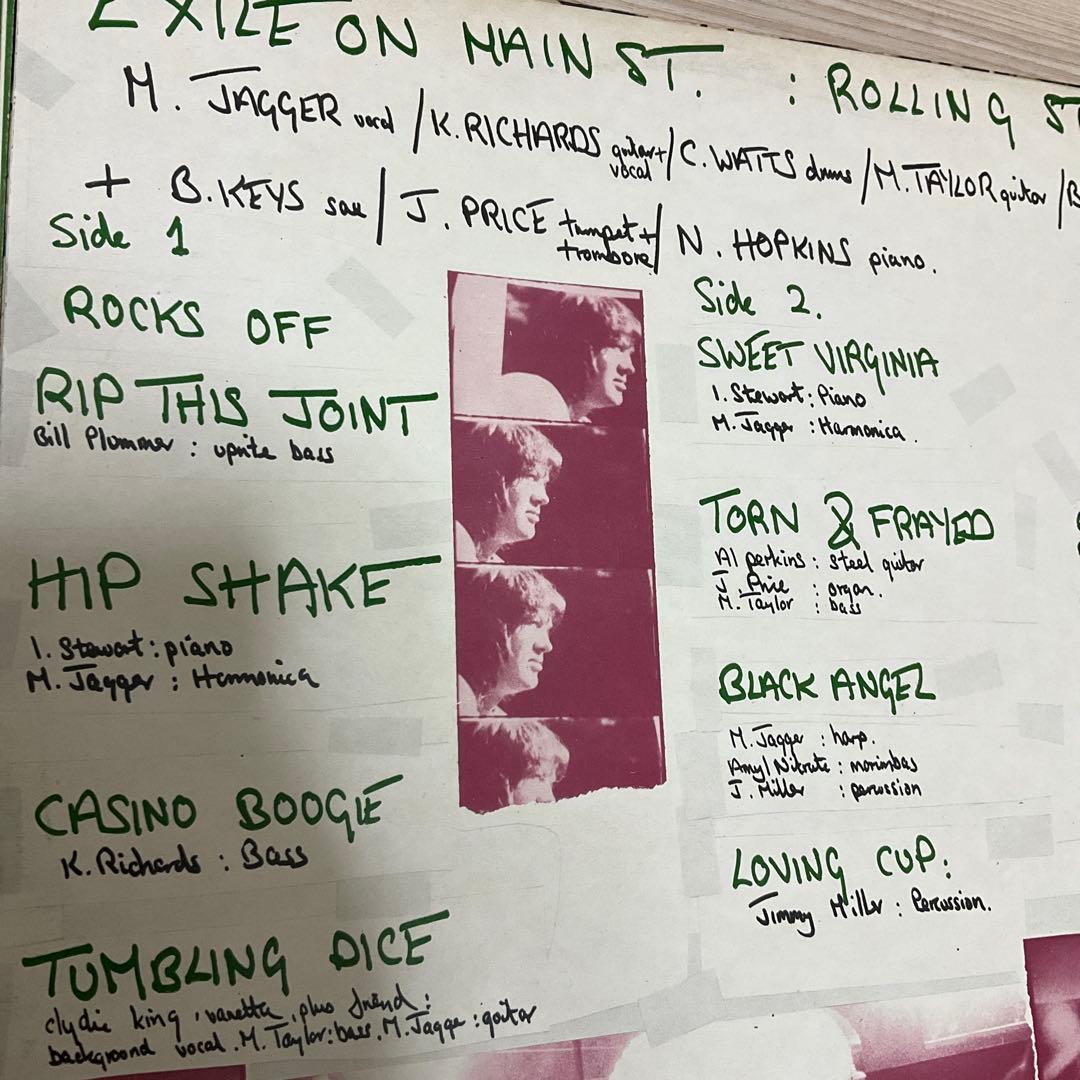 EXILE ON MAIN ST. : ROLLING ST
M. JAGGER vocal / K. RICHARDS guitar + vocal / C. WATTS drums / M. TAYLOR guitar / B
+ B. KEYS sax / J. PRICE trumpet + trombone / N. HOPKINS piano.
Side 1
ROCKS OFF
RIP THIS JOINT
Bill Plummer : uprite bass
HIP SHAKE
I. Stewart : piano
M. Jagger : Harmonica
CASINO BOOGIE
K. Richards : Bass
TUMBLING DICE
clydie king, vanetta, plus friend :
background vocal. M. Taylor : bass. M. Jagger : guitar
Side 2.
SWEET VIRGINIA
I. Stewart : Piano
M. Jagger : Harmonica.
TORN & FRAYED
Al perkins : steel guitar
J. Price : organ.
M. Taylor : bass
BLACK ANGEL
M. Jagger : harp.
Amyl Nitrate : marimbas
J. Miller : percussion
LOVING CUP :
Jimmy Miller : Percussion.